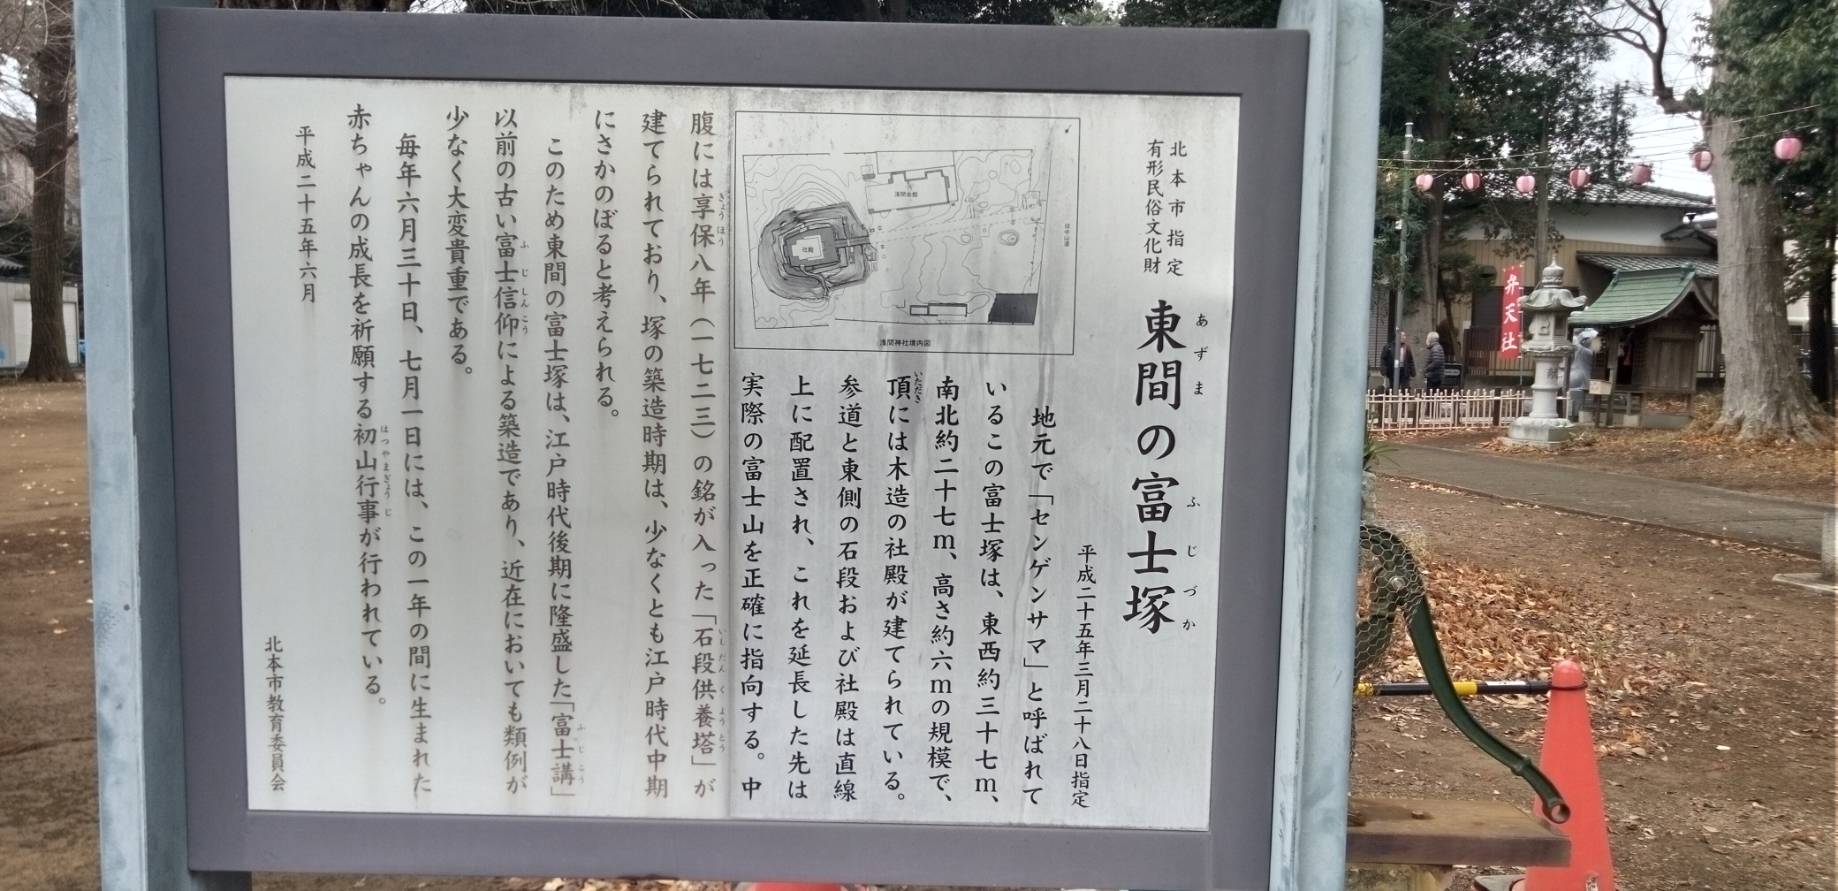 北本市指定
有形民俗文化財
東間の富士塚
あずま ふじづか
平成二十五年三月二十八日指定
地元で「センゲンサマ」と呼ばれて
いるこの富士塚は、東西約三十七m、
南北約二十七m、高さ約六mの規模で、
頂には木造の社殿が建てられている。
いただき
参道と東側の石段および社殿は直線
上に配置され、これを延長した先は
実際の富士山を正確に指向する。中
腹には享保八年(一七二三)の銘が入った「石段供養塔」が
きょうほう いしだんくようとう
建てられており、塚の築造時期は、少なくとも江戸時代中期
にさかのぼると考えられる。
このため東間の富士塚は、江戸時代後期に隆盛した「富士講」
ふじこう
以前の古い富士信仰による築造であり、近在においても類例が
ふじしんこう
少なく大変貴重である。
毎年六月三十日、七月一日には、この一年の間に生まれた
赤ちゃんの成長を祈願する初山行事が行われている。
はつやまぎょうじ
平成二十五年六月
北本市教育委員会
浅間会館
社殿
浅間神社境内図
弁天社